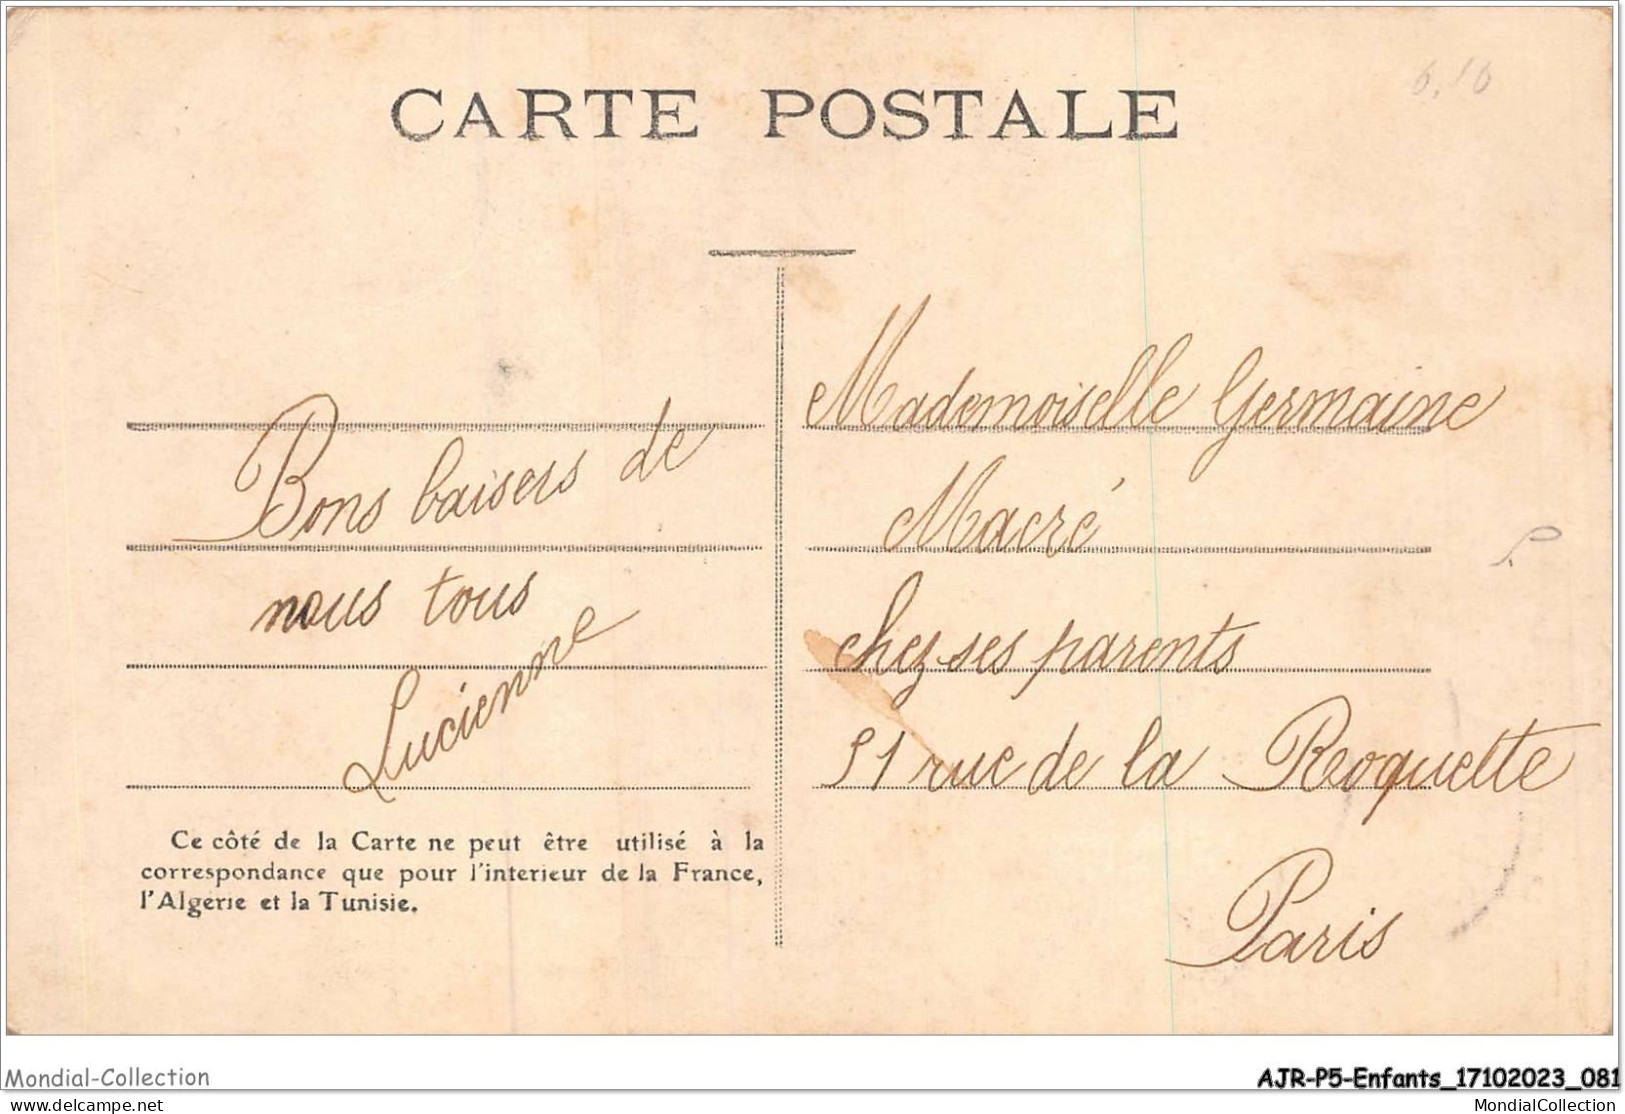 CARTE POSTALE
Bons baisers de
nous tous
Lucienne
Ce côté de la Carte ne peut être utilisé à la
correspondance que pour l'interieur de la France,
l'Algerie et la Tunisie.
Mademoiselle Germaine
Macré
chez ses parents
51 rue de la Roquette
Paris
Mondial-Collection
AJR-P5-Enfants_17102023_081
delcampe.net
MondialCollection